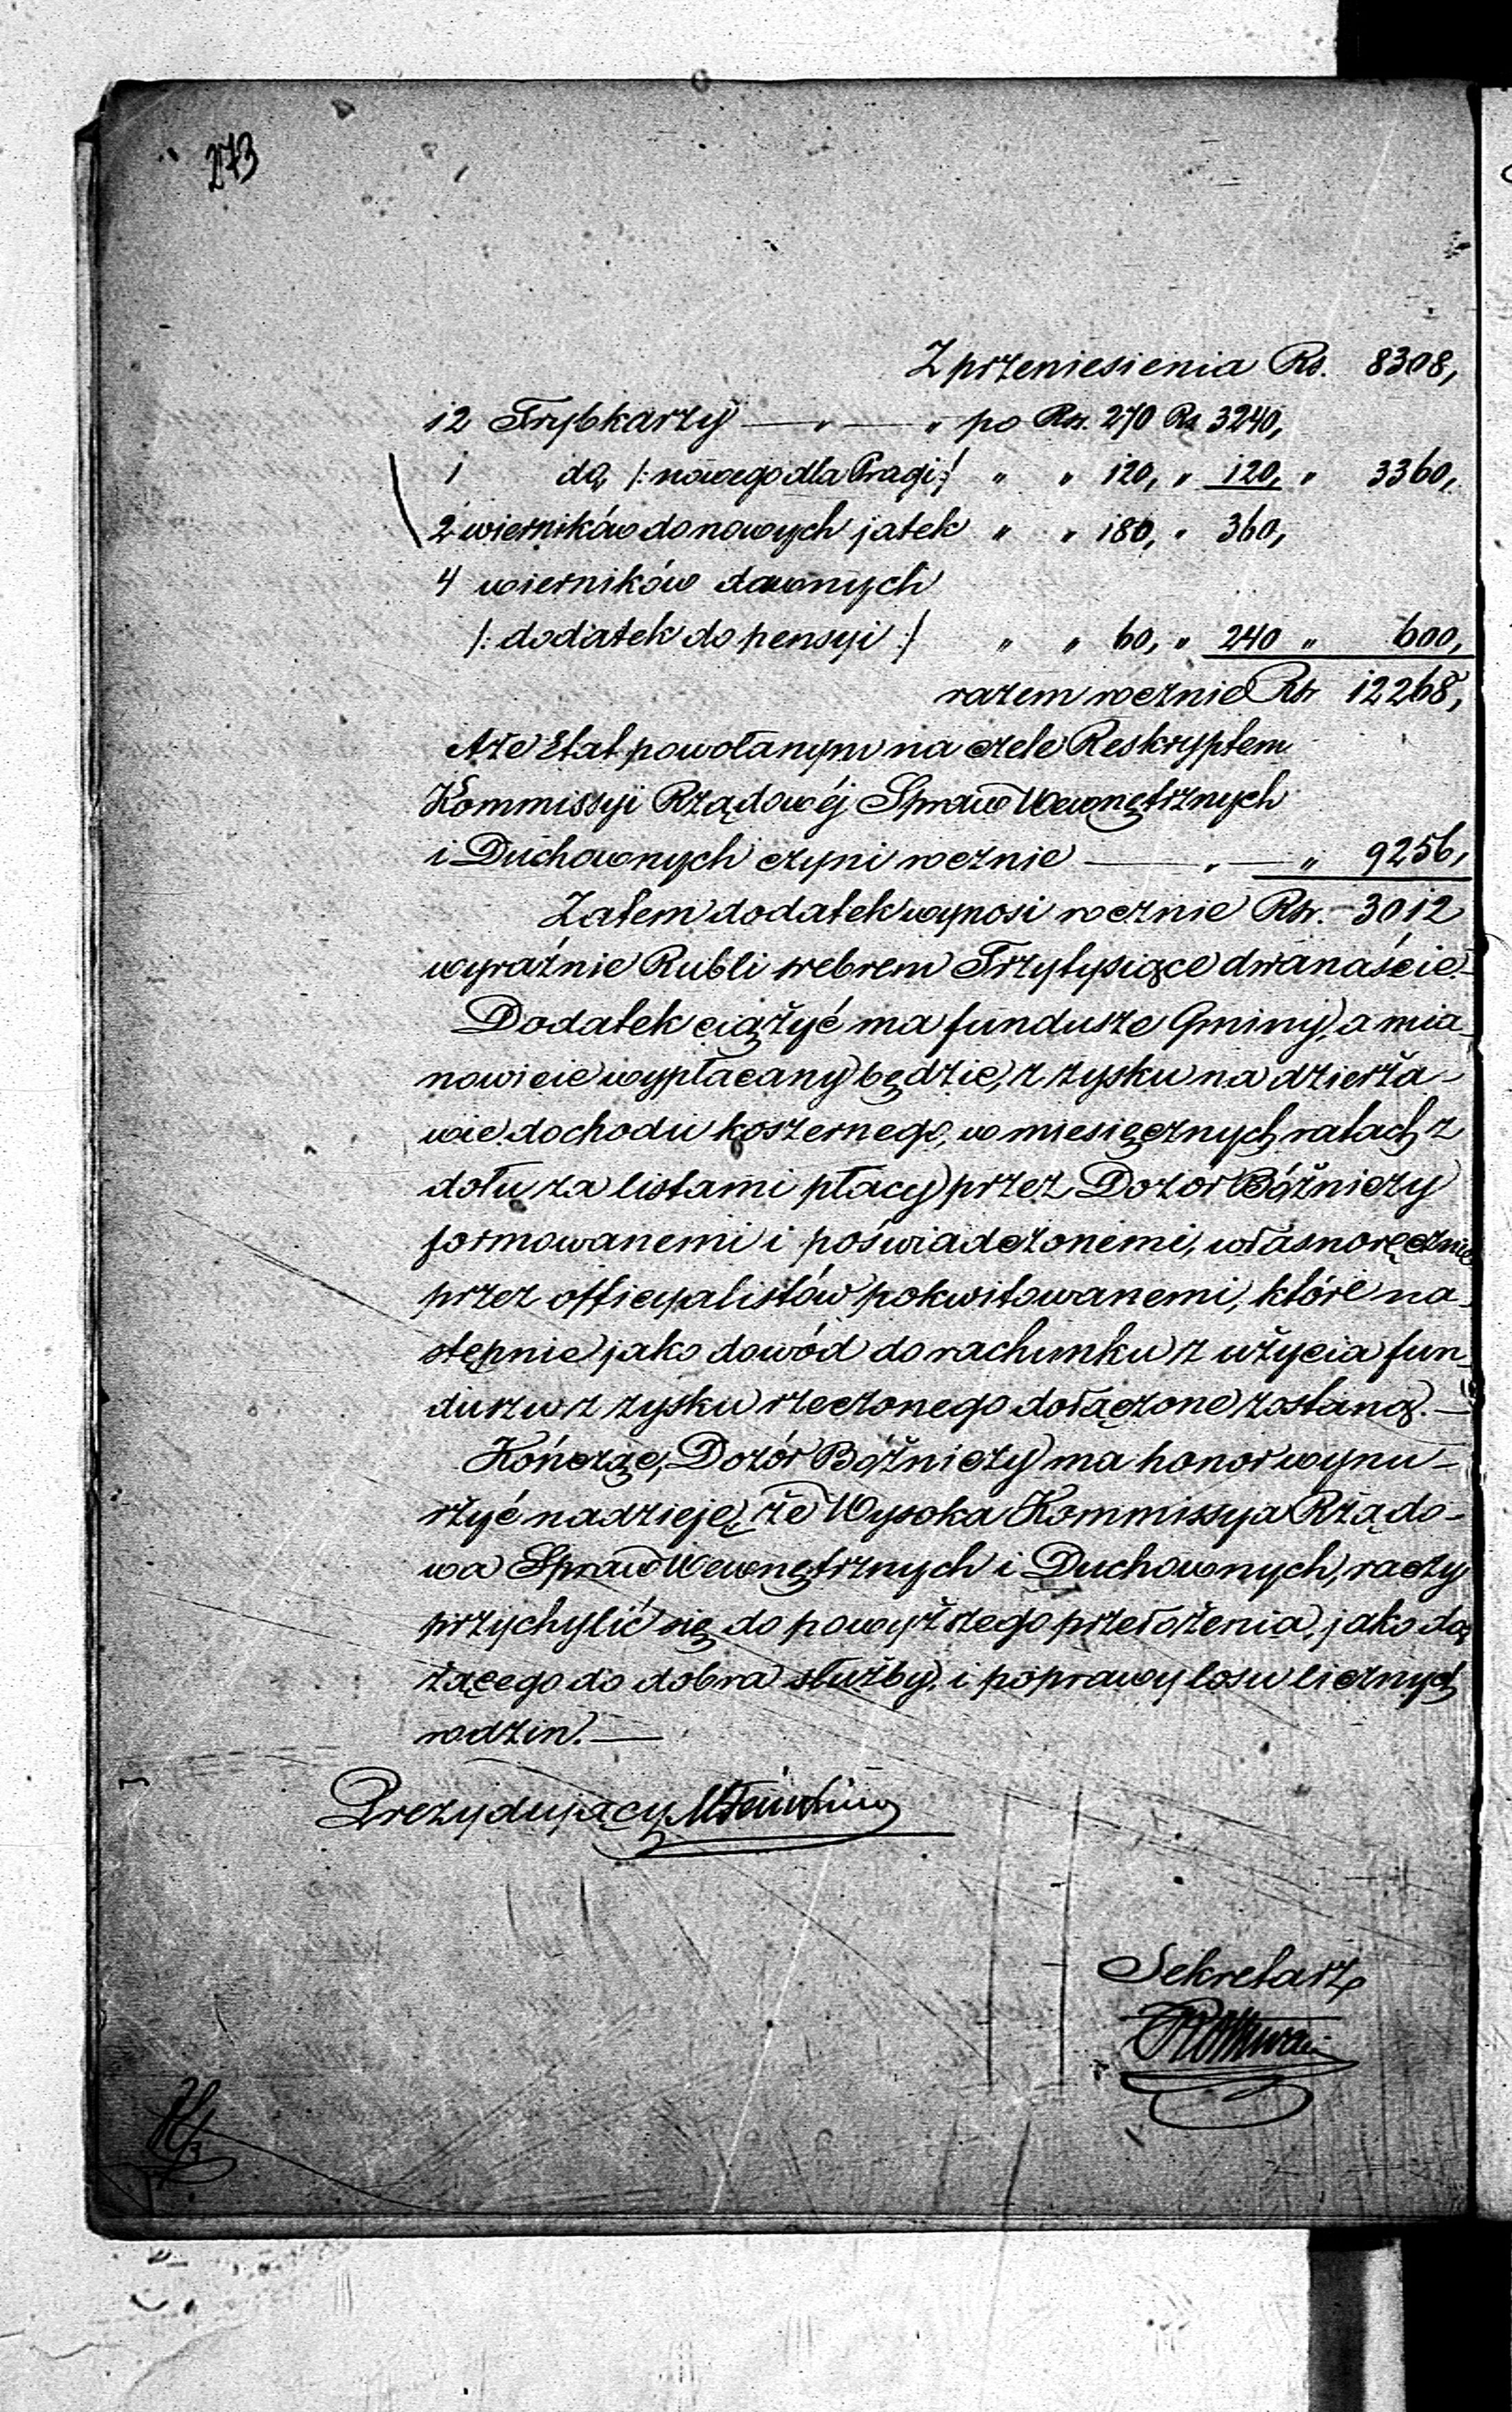 273
Z przeniesienia Rs. 8308,
12 Trybkarzy — „ — „ po Rsr. 270 Rs 3240,
1 do, /: nowego dla Pragi :/ „ „ 120, „ 120, „ 3360,
2 wierników do nowych jatek „ „ 180, „ 360,
4 wierników dawnych
/: dodatek do pensyi :/ „ „ 60, „ 240 „ 600,
razem rocznie Rsr 12268,
A że Etat powołanym na czele Reskryptem
Kommissyi Rządowéj Spraw Wewnętrznych
i Duchownych czyni rocznie — „ — „ 9256,
Zatem dodatek wynosi rocznie Rsr. 3012
wyraźnie Rubli srebrem Trzy tysiące dwanaście.—
Dodatek ciążyć ma fundusze Gminy, a mia-
nowicie wypłacany będzie, z zysku na dzierża-
wie dochodu koszernego, w miesięcznych ratach z
dołu za listami płacy przez Dozor Bóżniczy
formowanemi i poświadczonemi, własnoręcznie
przez officyalistów pokwitowanemi, które na-
stępnie jako dowód do rachunku z użycia fun-
duszu z zysku rzeczonego dołączone zostaną.—
Kończąc, Dozór Bóżniczy ma honor wynu-
rzyć nadzieję, że Wysoka Kommissya Rządo-
wa Spraw Wewnętrznych i Duchownych, raczy
przychylić się do powyższego przełożenia, jako dą-
żącego do dobra służby, i poprawy losu licznych
rodzin.—
Prezydujący
Sekretarz